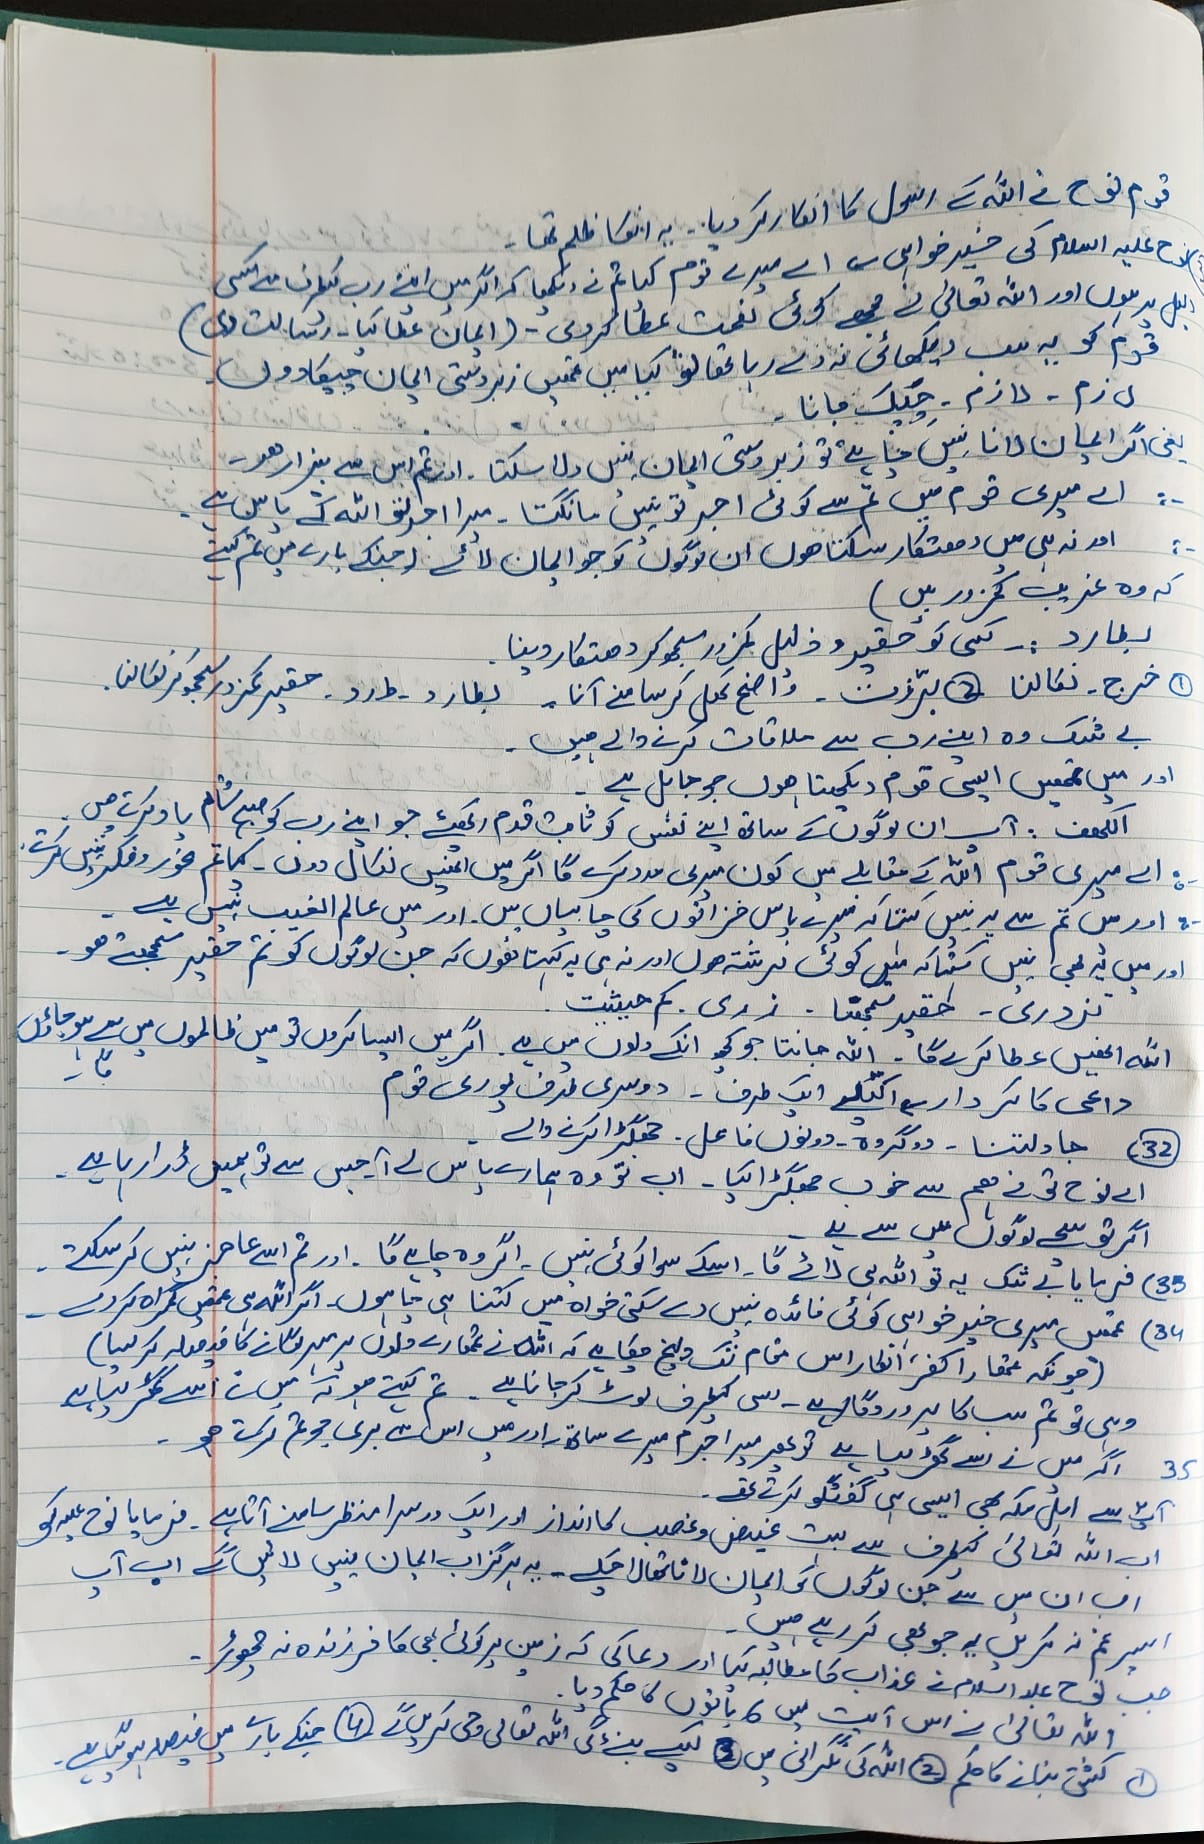 قوم نوح نے اللہ کے رسول کا انکار کر دیا۔ یہ انکا ظلم تھا۔
نوح علیہ اسلام کی خیر خواہی اے میرے قوم کیا تم نے دیکھا کہ اگر میں اپنے رب کیطرف سے کسی
دلیل پر ہوں اور اللہ تعالیٰ نے مجھے کوئی نعمت عطا کر دی - (ایمان عطا کیا - رسالت دی)
قوم کو یہ سب دیکھائی نہ دے رہا تھا تو کیا میں تمھیں زبردستی ایمان چپکا دوں۔
ل زم - لازم - چپک جانا -
یعنی اگر ایمان لانا نہیں چاہتے تو زبردستی ایمان نہیں دلا سکتا۔ اور تم اس سے بیزار ھو۔
:- اے میری قوم میں تم سے کوئی اجر تو نہیں مانگتا۔ میرا اجر تو اللہ کے پاس ہے۔
:- اور نہ ہی میں دھتکار سکتا ھوں ان لوگوں کو جو ایمان لائے (جنکے بارے میں تم کہتے
کہ وہ غریب کمزور ہیں)
بطارد :- کسی کو حقیر و ذلیل کمزور سمجھ کر دھتکار دینا۔
① خرج - نکالنا ② برزت - واضح کھل کر سامنے آنا۔ بطارد - طرد - حقیر کمزور سمجھ کر نکالنا۔
بے شک وہ اپنے رب سے ملاقات کرنے والے ہیں۔
اور میں تمھیں ایسی قوم دیکھتا ھوں جو جاہل ہے۔
الکھف : آپ ان لوگوں کے ساتھ اپنے نفس کو ثابت قدم رکھیئے جو اپنے رب کو صبح شام یاد کرتے ھیں۔
:- اے میری قوم اللہ کے مقابلے میں کون میری مدد کرے گا اگر میں انھیں نکال دوں۔ کیا تم غور و فکر نہیں کرتے۔
:- اور میں تم سے یہ نہیں کہتا کہ میرے پاس خزانوں کی چابیاں ہیں۔ اور میں عالم الغیب نہیں ہے۔
اور میں یہ بھی نہیں کہتا کہ میں کوئی فرشتہ ھوں اور نہ ہی یہ کہتا ھوں کہ جن لوگوں کو تم حقیر سمجھتے ھو۔
تزدری - حقیر سمجھنا - زری - کم حیثیت۔
اللہ انھیں عطا کرے گا۔ اللہ جانتا جو کچھ انکے دلوں میں ہے۔ اگر میں ایسا کروں تو میں ظالموں میں سے ہو جاؤں
گا۔
داعی کا کردار اکیلے ایک طرف - دوسری طرف پوری قوم
(32) جادلتنا - دو گروہ - دونوں فاعل - جھگڑا کرنے والے -
اے نوح تو نے ھم سے خوب جھگڑا کیا۔ اب تو وہ ہمارے پاس لے آ جس سے تو ہمیں ڈرا رہا ہے۔
اگر تو سچے لوگوں میں سے ہے
(33 فرمایا بے شک یہ تو اللہ ہی لائے گا۔ اسکے سوا کوئی نہیں۔ اگر وہ چاہے گا۔ اور تم اسے عاجز نہیں کر سکتے۔
(34 تمھیں میری خیر خواہی کوئی فائدہ نہیں دے سکتی خواہ میں کتنا ہی چاہوں۔ اگر اللہ ہی تمھیں گمراہ کر دے۔
(چونکہ تمھارا کفر، انکار اس مقام تک پہنچ چکا ہے کہ اللہ نے تمھارے دلوں پر مہر لگانے کا فیصلہ کر لیا)
وہی تو تم سب کا پروردگار ہے۔ اسی کیطرف لوٹ کر جانا ہے۔ تم کہتے ہو کہ میں نے اسے گھڑ لیا ہے
35 اگر میں نے اسے گھڑ لیا ہے تو پھر میرا جرم میرے ساتھ۔ اور میں اس سے بری جو تم کرتے ھو۔
آپؐ سے اہل مکہ بھی ایسی ہی گفتگو کرتے تھے۔
اب اللہ تعالیٰ کیطرف سے بہت غیض و غضب کا انداز اور ایک دوسرا منظر سامنے آتا ہے۔ فرمایا نوح علیہ کو
اب ان میں سے جن لوگوں کو ایمان لانا تھا لا چکے۔ یہ ہرگز اب ایمان نہیں لائیں گے اب آپ
اسپر غم نہ کریں یہ جو بھی کر رہے ھیں۔
جب نوح علیہ اسلام نے عذاب کا مطالبہ کیا اور دعا کی کہ زمین پر کوئی بھی کافر زندہ نہ چھوڑ۔
اللہ تعالیٰ نے اس آیت میں 6 باتوں کا حکم دیا۔
① کشتی بنانے کا حکم ② اللہ کی نگرانی میں ③ کیسے بنے گی اللہ تعالیٰ وحی کریں گے ④ جنکے بارے میں فیصلہ ہو گیا ہے۔